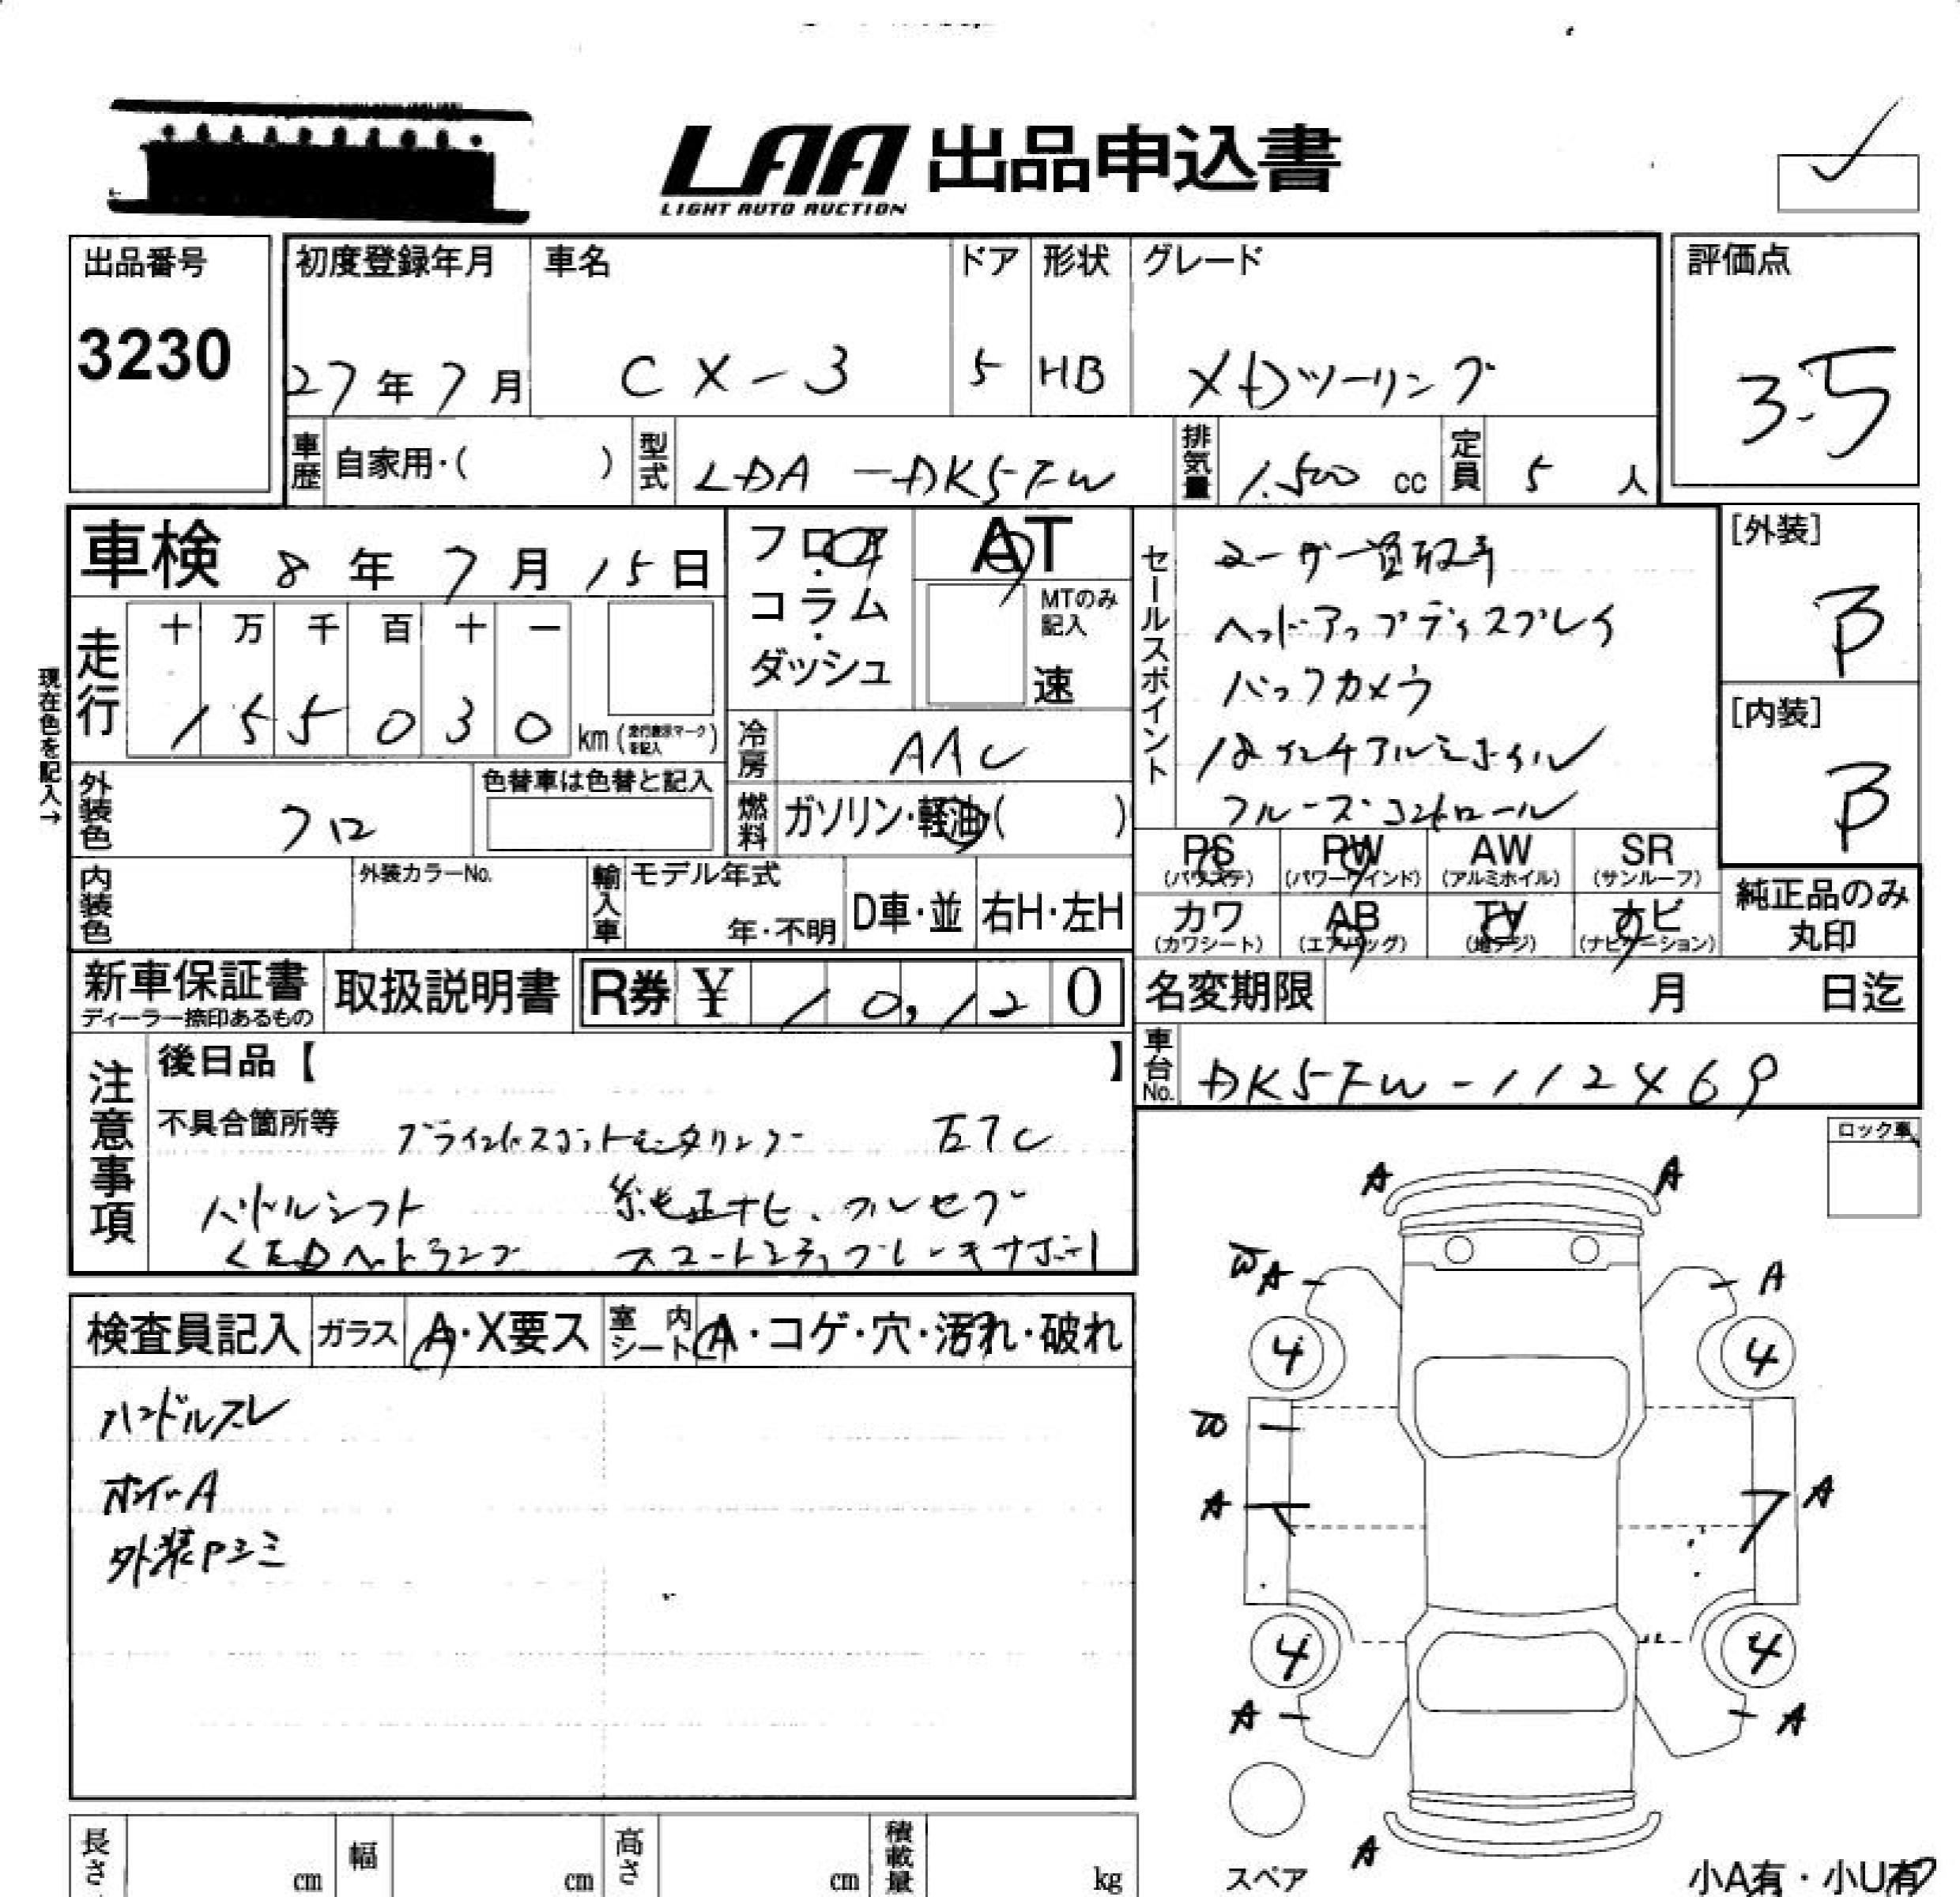 LAA 出品申込書
LIGHT AUTO AUCTION
出品番号
3230
初度登録年月
27年7月
車名
CX-3
ドア
5
形状
HB
グレード
XDツーリング
評価点
3.5
車歴 自家用・( )
型式 LDA-DK5FW
排気量 1.500 cc
定員 5 人
車検 8年7月15日
フロア・コラム・ダッシュ
AT
MTのみ記入
速
現在色を記入→
走行
十 万 千 百 十 一
1 5 5 0 3 0 km (走行表示マークを記入)
冷房 AAC
燃料 ガソリン・軽油・( )
外装色 クロ
色替車は色替と記入
内装色
外装カラーNo.
輸入車
モデル年式
年・不明
D車・並
右H・左H
セールスポイント
ユーザー買取車
ヘッドアップディスプレイ
バックカメラ
18インチアルミホイル
クルーズコントロール
[外装]
B
[内装]
B
PS (パワステ)
PW (パワーウインド)
AW (アルミホイル)
SR (サンルーフ)
カワ (カワシート)
AB (エアバッグ)
TV (地デジ)
ナビ (ナビゲーション)
純正品のみ丸印
新車保証書
ディーラー捺印あるもの
取扱説明書
R券 ¥ 10,120
名変期限 月 日迄
車台No. DK5FW-112469
注意事項
後日品【 】
不具合箇所等 ブラインドスポットモニタリング ETC
パドルシフト 純正ナビ、フルセグ
LEDヘッドランプ スマートシティブレーキサポート
ロック車
検査員記入
ガラス A・X要ス
室内シート A・コゲ・穴・汚れ・破れ
ハンドルスレ
ホイールA
外装Pシミ
A A
A A
4 4
A A
4 4
A A
A
スペア
小A有・小U有
長さ cm
幅 cm
高さ cm
積載量 kg